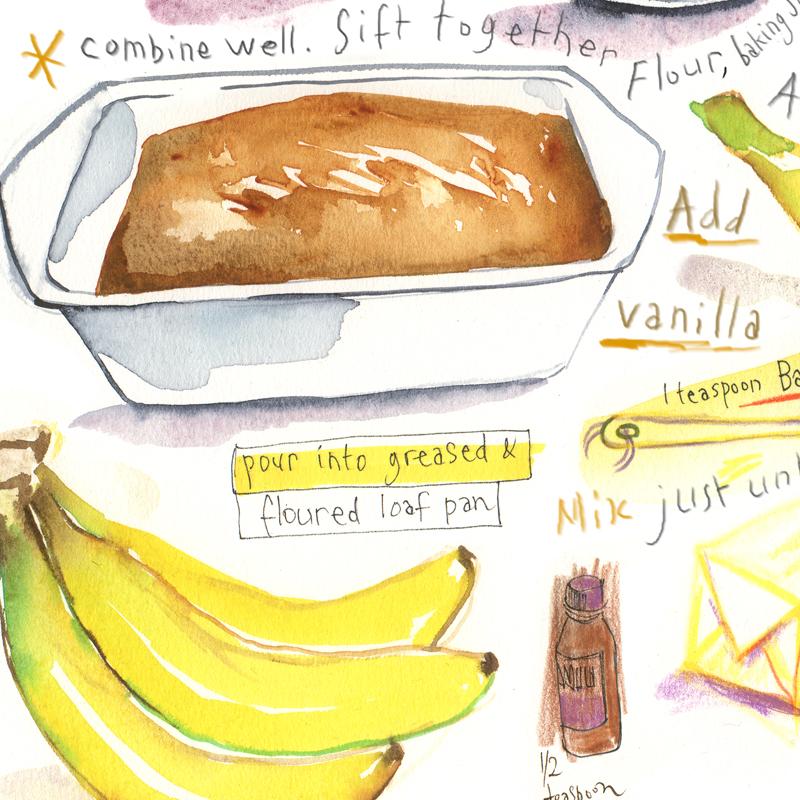 combine well. Sift together Flour, baking
Add
vanilla
1 teaspoon Ba
pour into greased &
floured loaf pan
Mix just unt
1/2
teaspoon